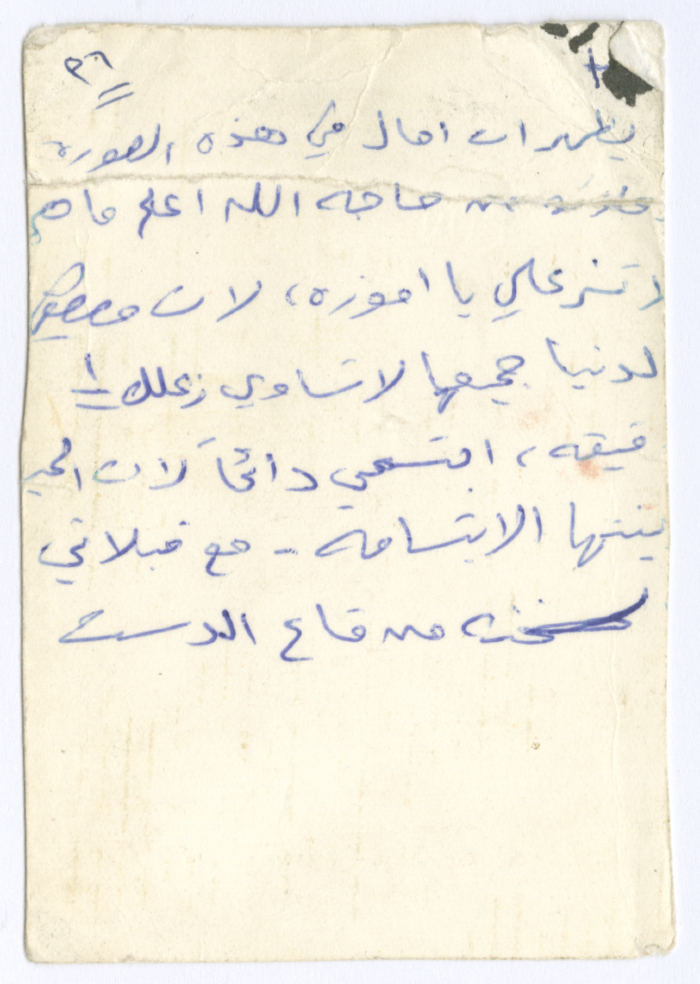 ٣٦
يظهر ان امال في هذه الصوره
من حاجه الله اعلم ما هي
لا تزعلي يا اموره، لان
لدنيا جميعها لا تساوي زعلك!
قيقه، ابتسمي دائماً لان الحيـ
ينتها الابتسامه - مع قبلاتي
لسخنه من قاع الدست